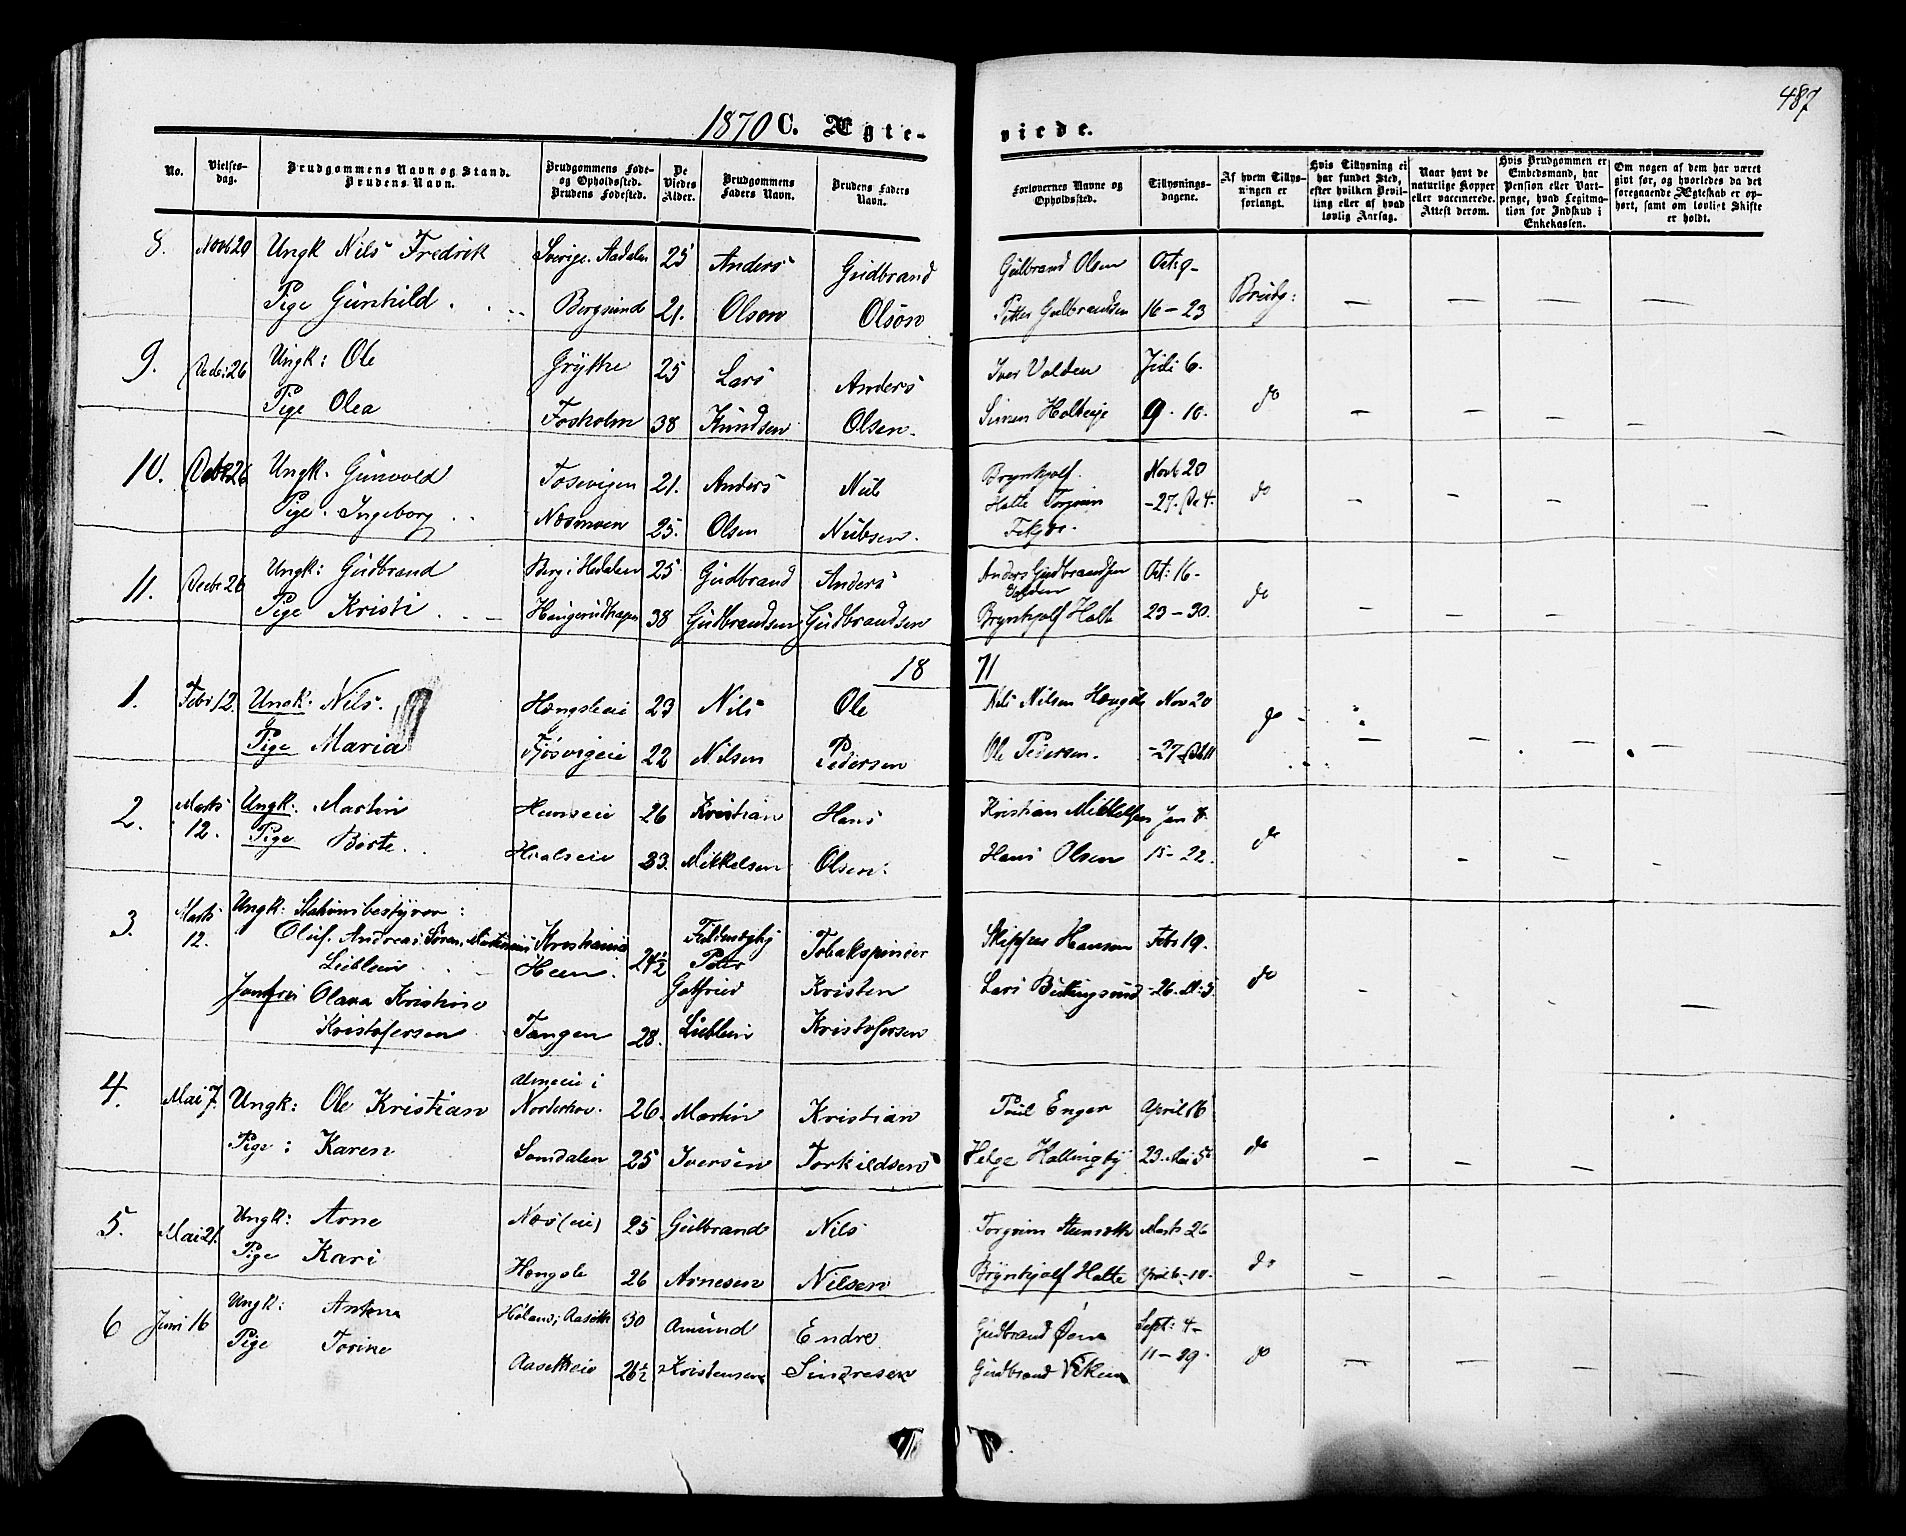 487
1870 C. Ægteviede.
No.
Vielsesdag.
Brudgommens Navn og Stand.
Brudens Navn.
Brudgommens Føde- og Opholdssted.
Brudens Fødested.
De Viedes Alder.
Brudgommens Faders Navn.
Brudens Faders Navn.
Forlovernes Navne og Opholdssted.
Tillysningsdagene.
Af hvem Tillysningen er forlangt.
Hvis Tillysning ei har fundet Sted, efter hvilken Bevilling eller af hvad lovlig Aarsag.
Naar havt de naturlige Kopper eller vaccinerede. Attest derom.
Hvis Brudgommen er Embedsmand, har Pension eller Vartpenge, hvad Legitmation for Indskud i Enkekassen.
Om nogen af dem har været gift før, og hvorledes da det foregaaende Ægteskab er ophørt, samt om lovligt Skifte er holdt.
8. Novb 20 Ungk Nils Fredrik Sverige. Aadalen 25 Anders Gudbrand Gulbrand Olsen Oct. 9- Brudg: — — — —
Pige Gunhild. Bergsund 21. Olsen Olsøn Petter Gulbrandsen 16 – 23
9. Decbr 26 Ungk: Ole Grythe 25 Lars Anders Iver Volden Juli 6. do — — — —
Pige Olea Foskolm 38 Knudsen Olsen. Simen Holteeje 9. 10.
10. Decbr 26 Ungk. Gunvold Tosevigen 21. Anders Nils Brynhjolf Novb 20 do — — —
Pige. Ingeborg Næsmoen 25. Olsen Nilsen. Halte Torgrim -27. De 4.
11. Decbr 26 Ungk: Gudbrand Berg i Hedalen 25 Gudbrand Anders Anders Gudbrandsen Oct: 16- do — — — —
Pige Kristi 38 Gudbrandsen Gudbrandsen Brynhjolf Halte 23 – 30.
18 71
1. Febr 12. Ungk: Nils. Hængsleeie 23 Nils Ole Nils Nilsen Hængsle Nov 20 do — — — —
Pige Maria Tjøsvigeie 22 Nilsen Pedersen Ole Pedersen. -27
2. Marts 12. Ungk. Martin 26 Kristian Hans Kristian Mikkelsen Jan 8 do — — —
Pige Berte. 23. Mikkelsen Olsen: Hans Olsen 15 – 22.
3. Marts 12. Ungk: Stationsbestyrer:
Oluf. Andreas Søren Martinius Kristiania Feldmægtig Tobakspinder Skipper Hansen Febr 19. do — — — —
Lieblein Heen. 24½ Peter
Jomfru Olava Kristine Gotfried Kristen Lars -26.
Kristofersen Tangen 28. Lieblein Kristofersen
4. Mai 7. Ungk: Ole Kristian Almeeie i Norderhov. 26. Martin Kristian Paul Enger April 16 do — — — —
Pige: Karen Somdalen 25 Iversen Torkildsen Helge Hallingby 23. Mai 5
5. Mai 21. Ungk: Arne Næs (eie) 25 Gulbrand Nils Torgrim Marts 26 do — — — —
Pige Kari Hængsle 26 Arnesen Nilsen Brynhjolf Halte April 6.-10.
6 Juni 16 Ungk: Anton 30 Amund Endre Gudbrand Øen Sept: 4- do — — — —
Pige Torine Aasetheeie 26½ Kristensen Sindresen Gudbrand Veken 11 – 29.